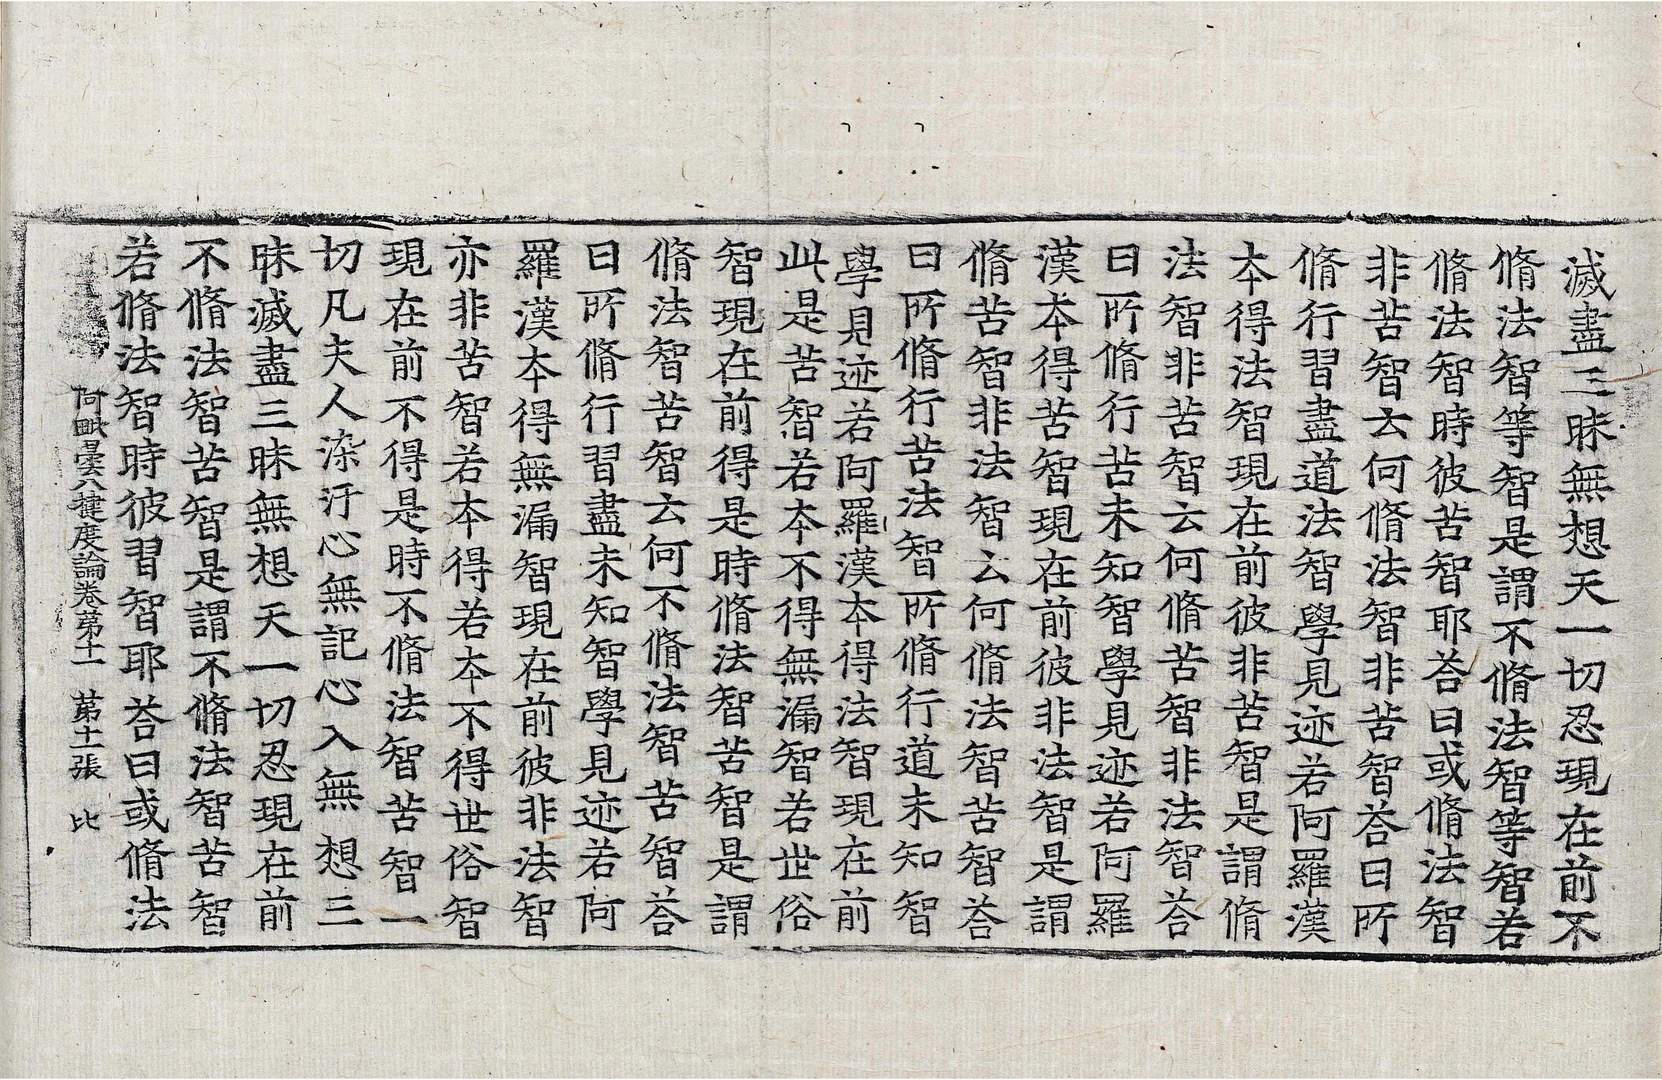 滅盡三昧無想天一切忍現在前不
脩法智等智是謂不脩法智等智若
脩法智時彼苦智耶荅曰或脩法智
非苦智云何脩法智非苦智荅曰所
脩行習盡道法智學見迹若阿羅漢
本得法智現在前彼非苦智是謂脩
法智非苦智云何脩苦智非法智荅
曰所脩行苦未知智學見迹若阿羅
漢本得苦智現在前彼非法智是謂
脩苦智非法智云何脩法智苦智荅
曰所脩行苦法智所脩行道未知智
學見迹若阿羅漢本得法智現在前
此是苦智若本不得無漏智若世俗
智現在前得是時脩法智苦智是謂
脩法智苦智云何不脩法智苦智荅
曰所脩行習盡未知智學見迹若阿
羅漢本得無漏智現在前彼非法智
亦非苦智若本得若本不得世俗智
現在前不得是時不脩法智苦智一
切凡夫人染汙心無記心入無想三
昧滅盡三昧無想天一切忍現在前
不脩法智苦智是謂不脩法智苦智
若脩法智時彼習智耶荅曰或脩法
阿毗曇八揵度論卷第十一 第十一張 比